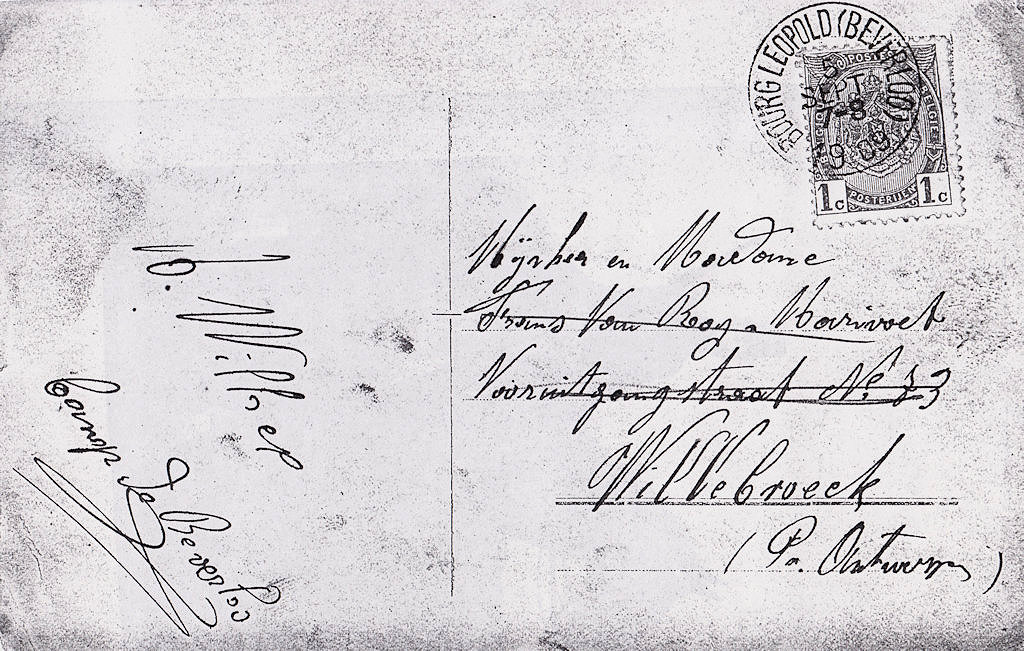 BOURG LEOPOLD (BEVERLOO)
5
SEPT
7-8
09
POSTES
BELGIË
1c 1c
POSTERIJEN
Mÿnheer en Madame
Frans Van Roy - Marivoet
Vooruitgangstraat No 73
Willebroeck
(Pr. Antwerpen)
Camp de Beverloo